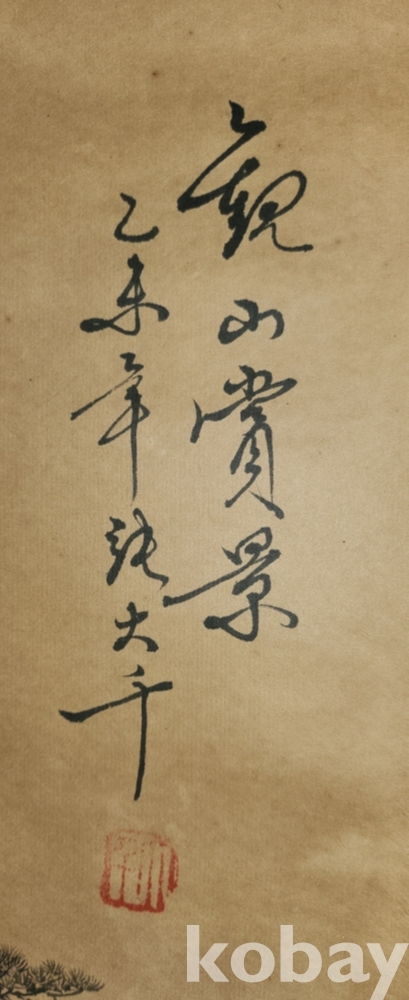 觀山賞景
乙未年張大千
kobay